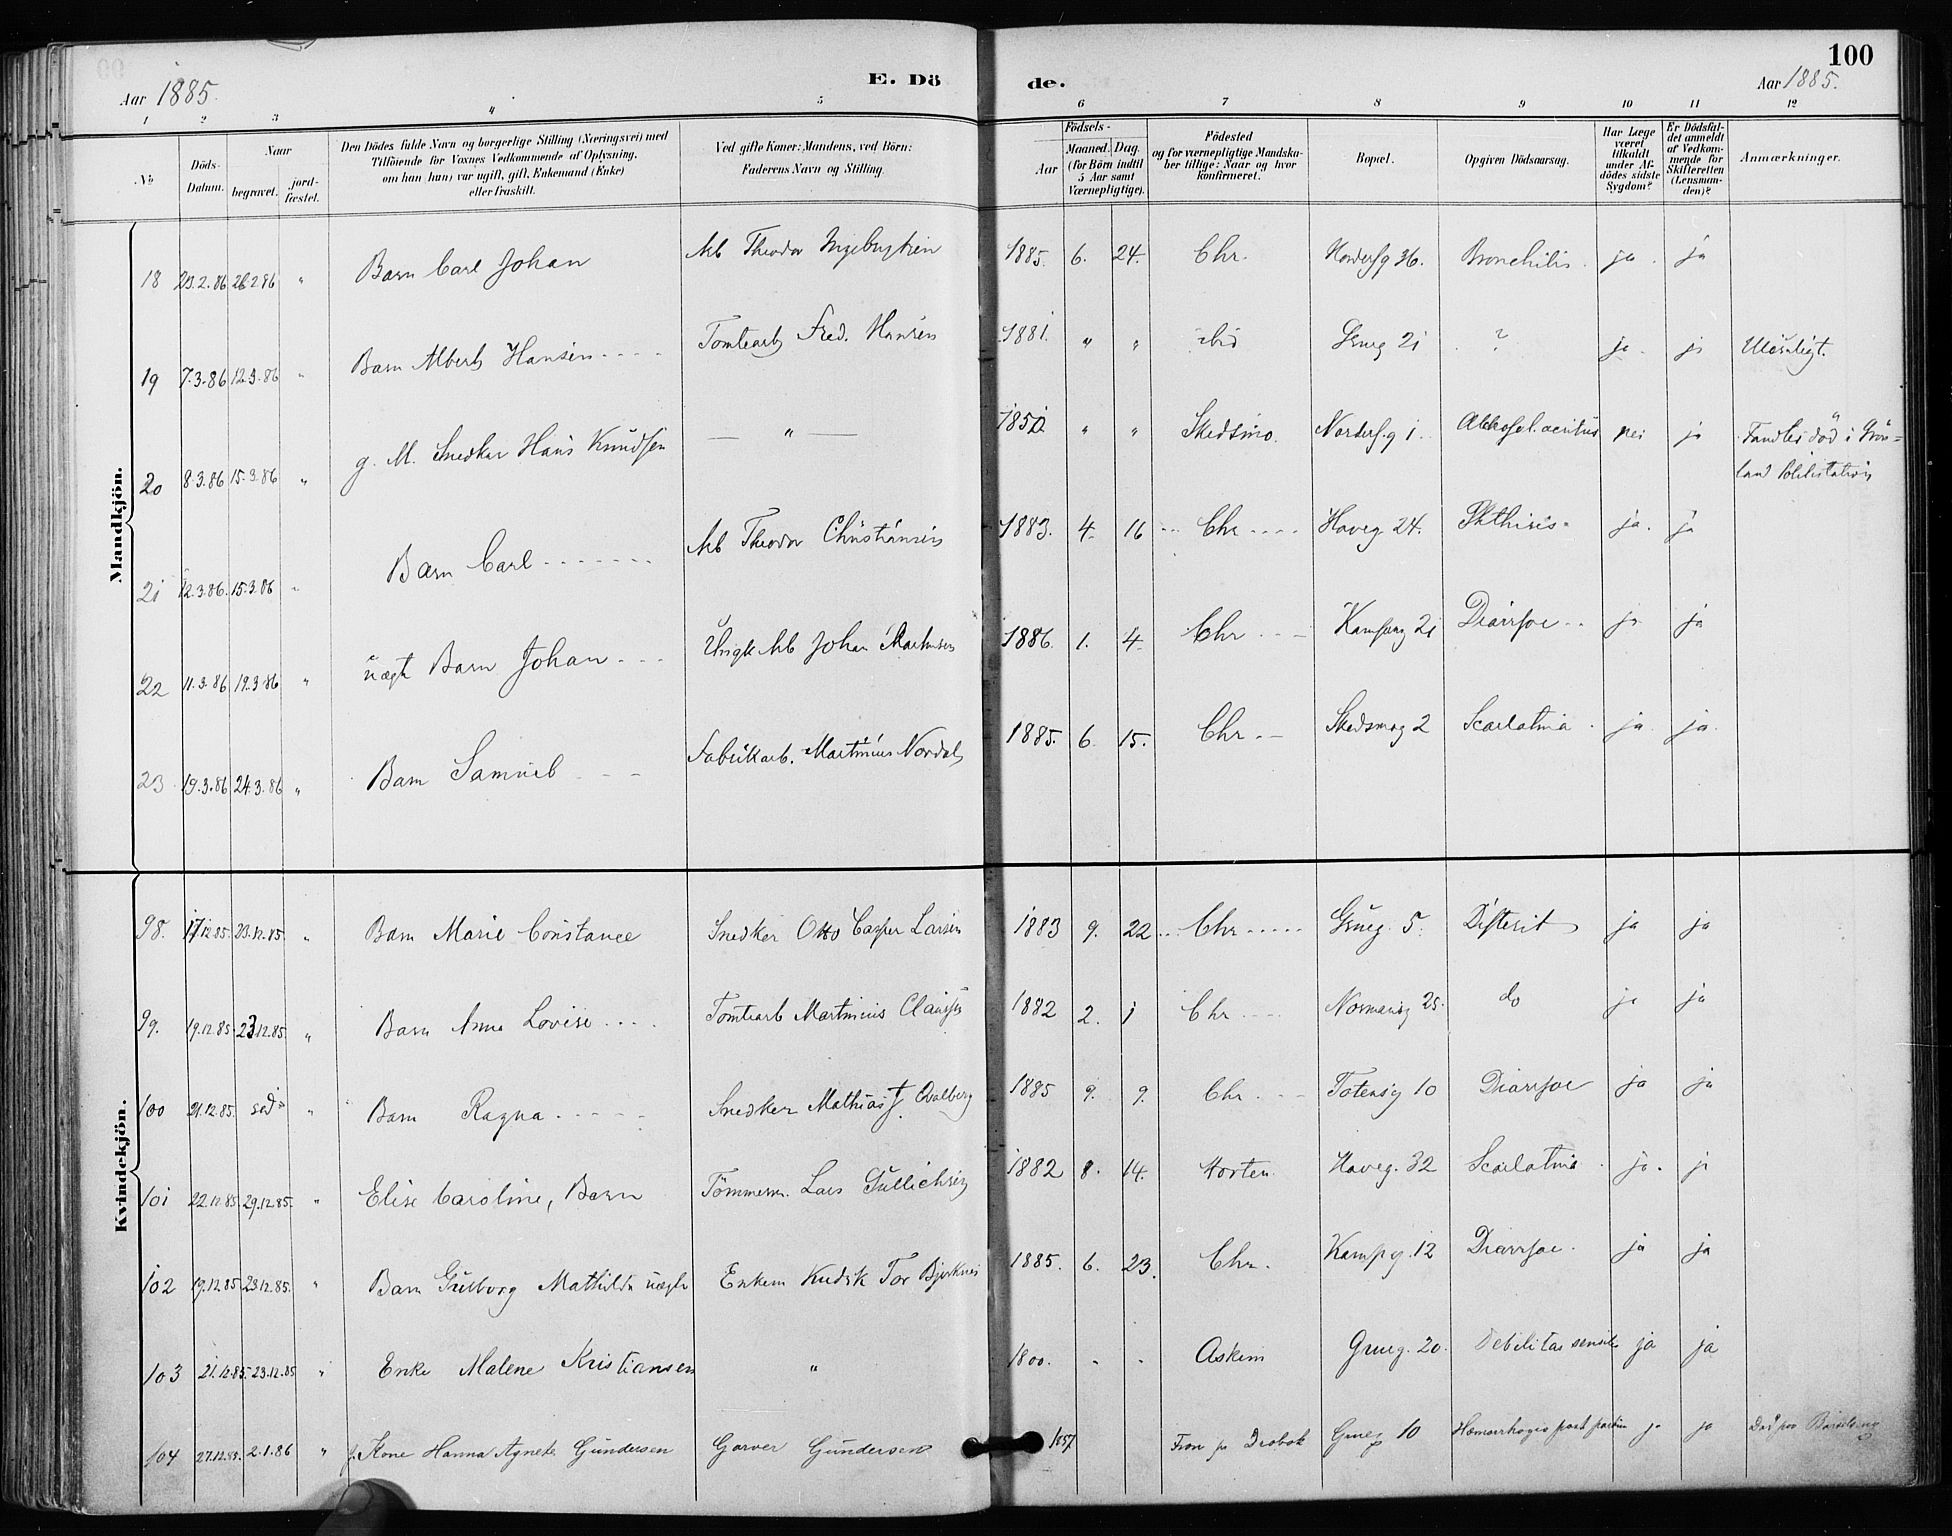 100
Aar 1885. E. Dö de. Aar 1885.
1 2 3 4 5 6 7 8 9 10 11 12
No Döds-Datum. Naar begravet. jordfæstet. Den Dödes fulde Navn og borgerlige Stilling (Næringsvei) med Tilföiende for Voxnes Vedkommende af Oplysning, om han (hun) var ugift, gift, Enkemand (Enke) eller fraskilt. Ved gifte Koner: Mandens, ved Börn: Faderens Navn og Stilling. Födsels- Aar Maaned. Dag. (for Börn indtil 5 Aar samt Værnepligtige). Födested og for værnepligtige Mandskaber tillige: Naar og hvor konfirmeret. Bopæl. Opgiven Dödsaarsag. Har Læge været tilkaldt under Afdödes sidste Sygdom? Er Dödsfaldet anmeldt af Vedkommende for Skifteretten (Lensmanden)? Anmærkninger.
Mandkjön.
18 23.2.86 26.2.86 " Barn Carl Johan Arb Theodor Ingebrigtsen 1885. 6. 24. Chr. 36. Bronchitis. ja. ja
19 7.3.86 12.3.86 " Barn Albert Hansen Tomtearb Fred. Hansen 1881. " " ibid 21 ? ja. ja
20 8.3.86 15.3.86 " g. M. Snedker Hans Knudsen — " — 1850. " " Skedsmo. Norderhg 1. nei ja Fandtes död i Grön=
land Politistation
21 12.3.86. 15.3.86 " Barn Carl Arb Theodor Christiansen 1883. 4. 16 Chr Haveg. 24. Phthisis. ja. ja
22 11.3.86 19.3.86 " uægt Barn Johan Ungk Arb Johan Martinsen 1886. 1. 4. Chr Kampeng 21 Diarrhoe ja ja
23 19.3.86 24.3.86 " Barn Samuel Fabrikarb. Martinius Nordal 1885. 6. 15. Chr. Skedsmog 2 Scarlatina. ja. ja.
Kvindekjön.
98. 17.12.85. 23.12.85 " Barn Marie Constance Snedker Otto Casper Larsen 1883 9. 22 Chr Grueg. 5. Difterit ja ja
99. 19.12.85. 23.12.85. " Barn Anna Lovise Tomtearb Martinius Clausen 1882 2. 1 Chr Normansg 25. do ja ja
100 21.12.85. " Barn Ragna Snedker Mathias J. Dalberg 1885 9. 9. Chr. Totensg 10 Diarrhoe ja ja
101 22.12.85. 29.12.85. " Elise Caroline, Barn Tömmerm. Lars Gullichsen 1882 8. 14. Horten Haveg. 32 Scarlatina. ja. ja
102 19.12.85 23.12.85. " Barn Gulborg Mathilde uægte Enkem Kudsk Tor Bjerknes 1885. 6. 23. Chr. Kampg. 12 Diarrhoe. ja ja
103 21.12.85. 23.12.85 " Enke Malene Kristiansen " 1800. - - Askim Grueg. 20. Debilitas senilis ja ja
104 27.12.85. 2.1.86 " g. Kone Hanna Agnete Gundersen Garver Gundersen 1857 Fron pr Dröbak Grueg 10 Hæmorrhagia post partum ja ja Död paa Barselseng